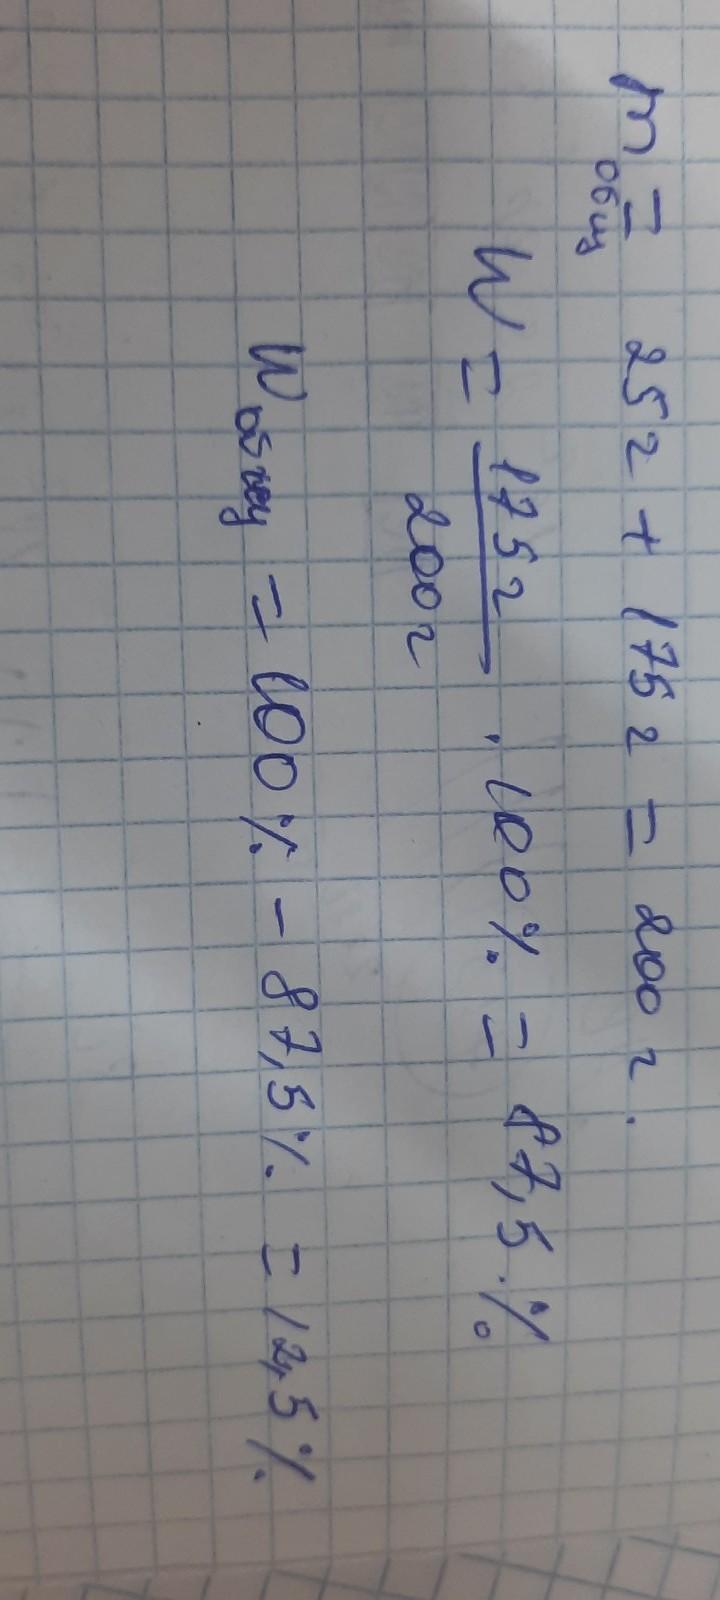 m общ = 25 г + 175 г = 200 г.
W = 175 г / 200 г · 100% = 87,5%
W общ = 100% - 87,5% = 12,5%